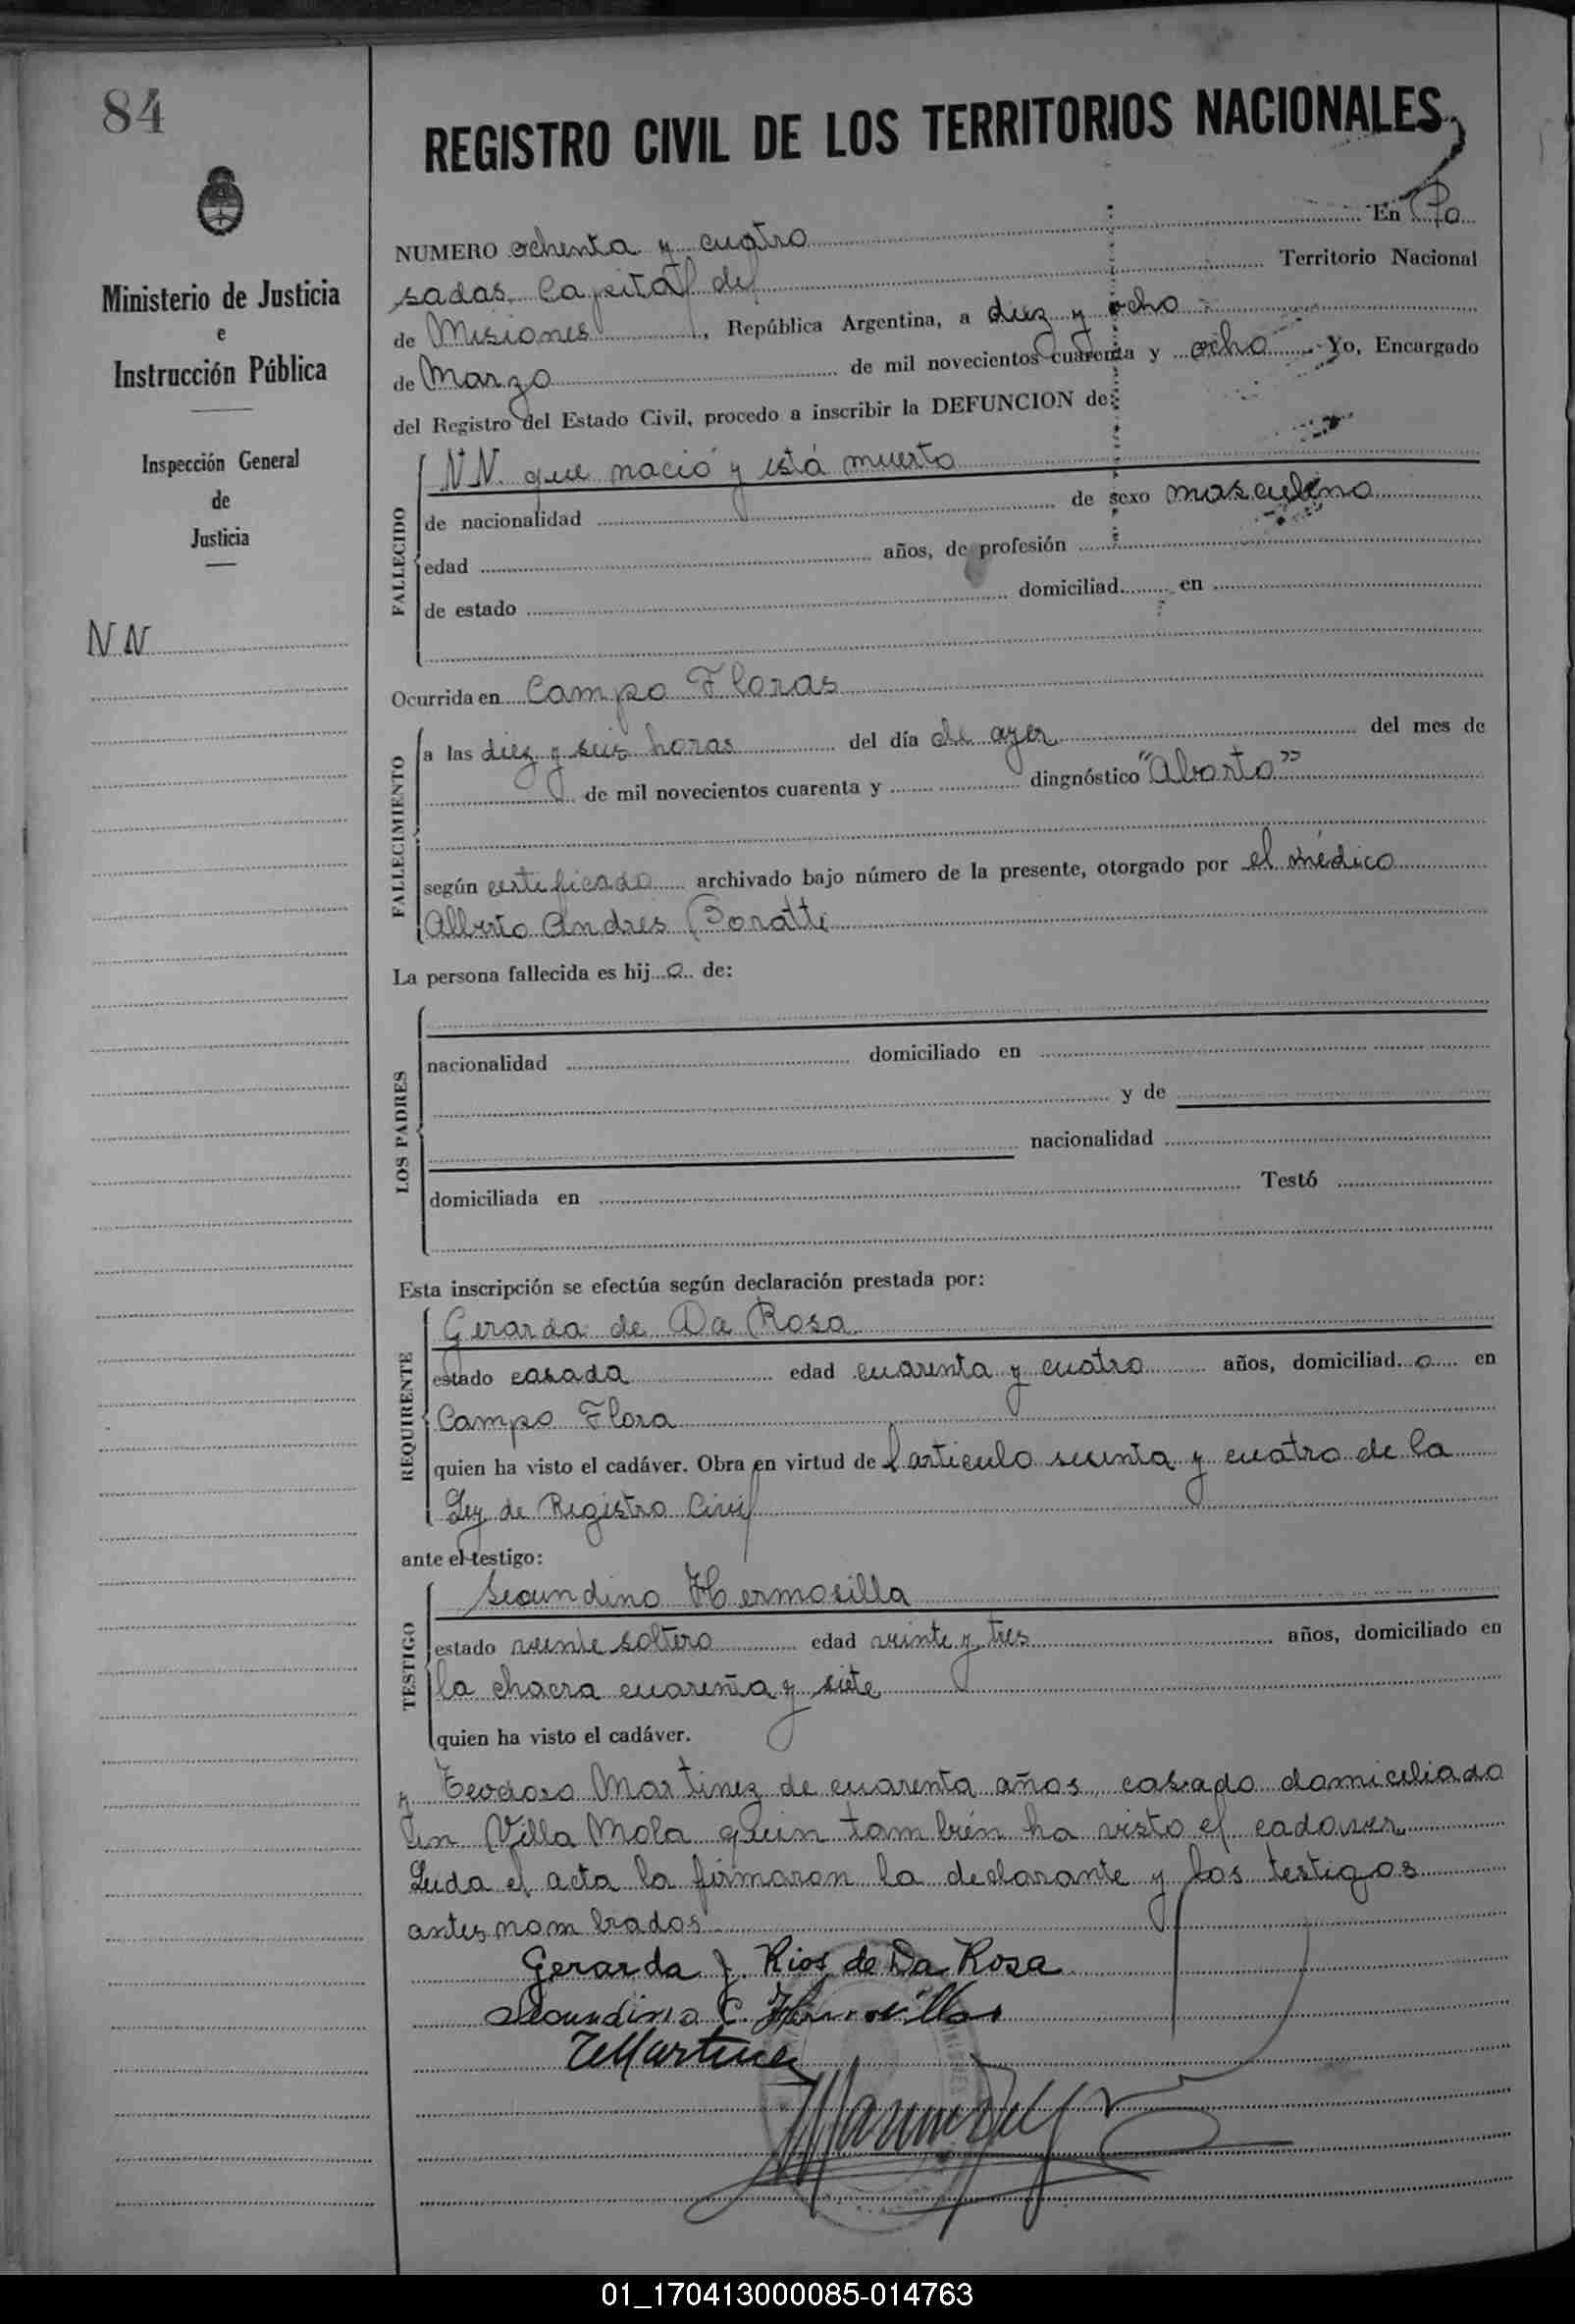 84
REGISTRO CIVIL DE LOS TERRITORIOS NACIONALES
Ministerio de Justicia
e
Instrucción Pública
Inspección General
de
Justicia
NN
NUMERO ochenta y cuatro En Po
sadas, Capital del Territorio Nacional
de Misiones, República Argentina, a diez y ocho
de Marzo de mil novecientos cuarenta y ocho Yo, Encargado
del Registro del Estado Civil, procedo a inscribir la DEFUNCION de:
FALLECIDO
N.N. que nació y está muerto
de nacionalidad de sexo masculino
edad años, de profesión
de estado domiciliad en
Ocurrida en Campo Floras
FALLECIMIENTO
a las diez y seis horas del día de ayer del mes de
de mil novecientos cuarenta y diagnóstico "Aborto"
según certificado archivado bajo número de la presente, otorgado por el médico
Alberto Andres Boratti
La persona fallecida es hijo de:
LOS PADRES
nacionalidad domiciliado en
y de
nacionalidad
domiciliada en Testó
Esta inscripción se efectúa según declaración prestada por:
REQUIRENTE
Gerarda de Da Rosa
estado casada edad cuarenta y cuatro años, domiciliado en
Campo Flora
quien ha visto el cadáver. Obra en virtud de l articulo setenta y cuatro de la
Ley de Registro Civil
ante el testigo:
TESTIGO
Secundino Hermosilla
estado veinte soltero edad veinte y tres años, domiciliado en
la chacra cuarenta y siete
quien ha visto el cadáver.
y Teodoro Martinez de cuarenta años, casado domiciliado
en Villa Mola quien también ha visto el cadaver
Leida el acta la firmaron la declarante y los testigos
antes nombrados
Gerarda J. Rios de Da Rosa
Secundino C. Hermosilla
TMartinez
01_170413000085-014763